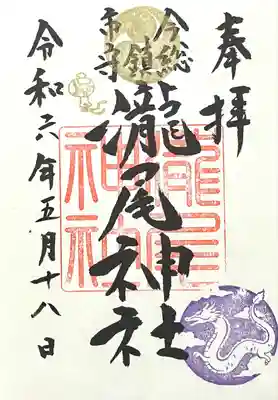 奉拝
今市
総鎮守
瀧尾神社
瀧尾神社
令和六年五月十八日